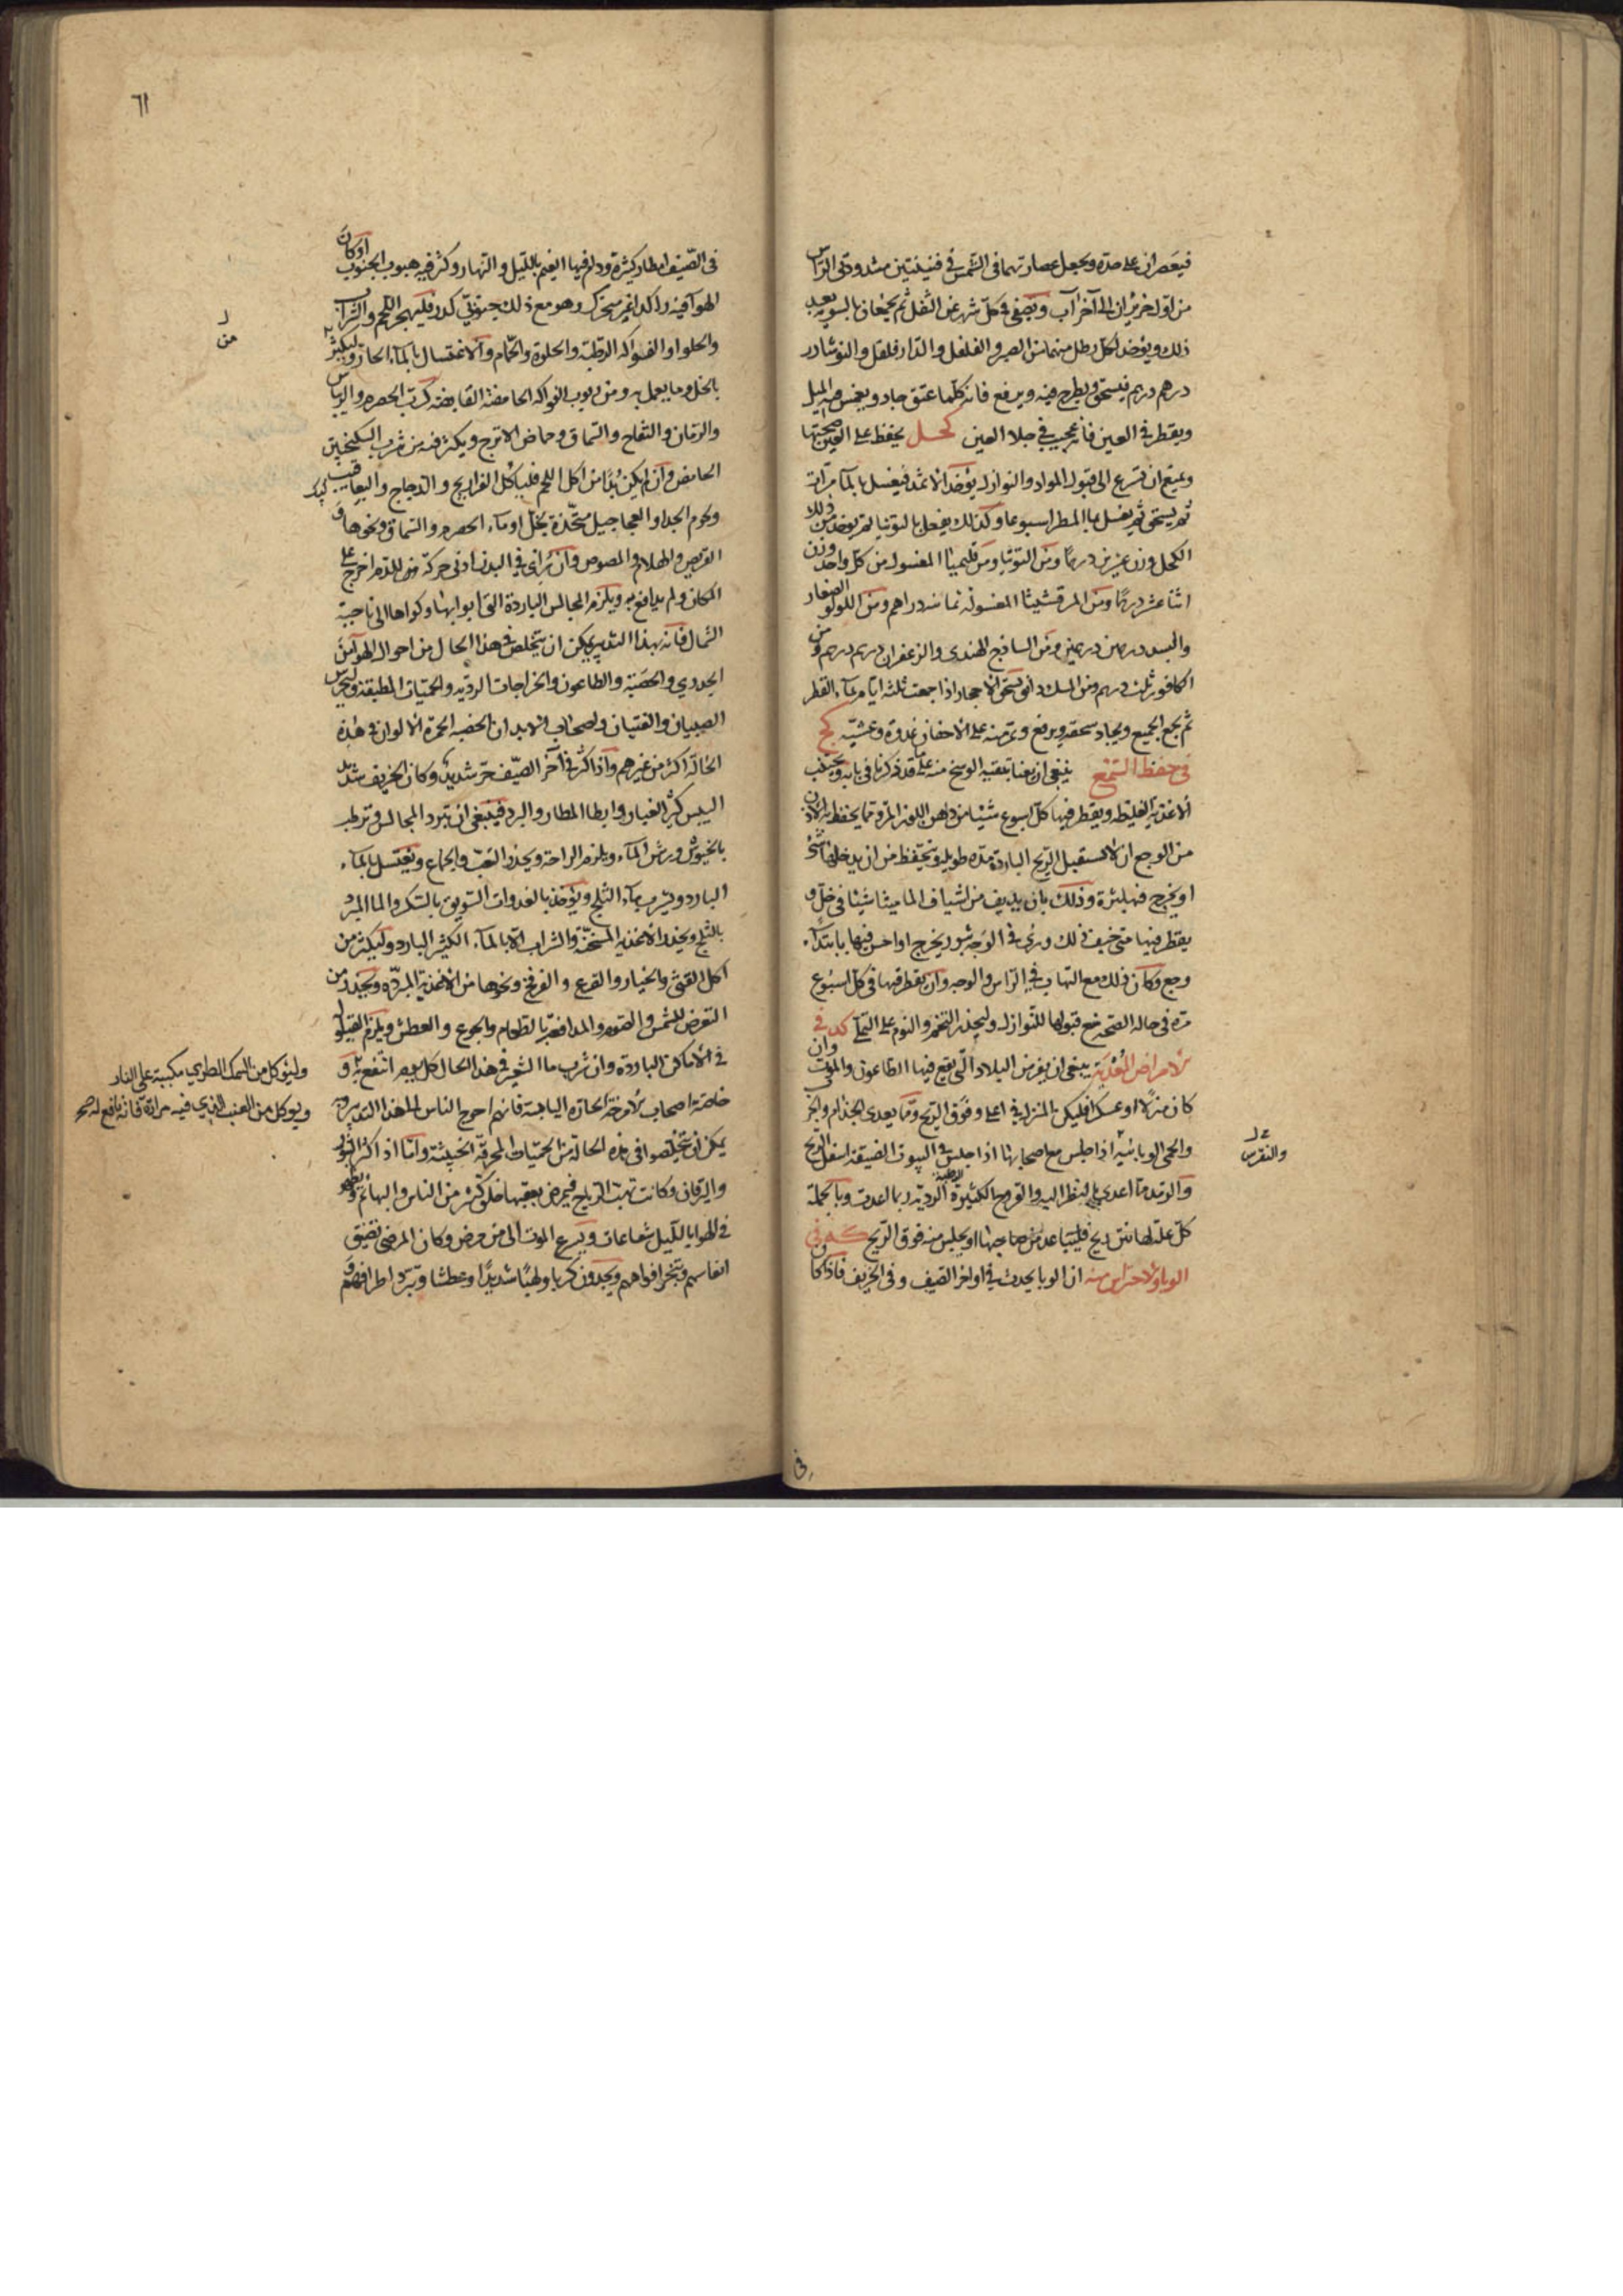 فيعصران على حدة ويجعل عصارتهما فى الشمس فى قنينتين مشدودتى الراس
من اول حزيران الى آخر آب ويصفى فى كل شهر عن الثفل ثم يجمعان بالسوية بعد
ذلك ويؤخذ لكل رطل منهما من الصبر والفلفل والدارفلفل والنوشادر
درهم درهم فيسحق ويطرح فيه ويرفع فانه كلما عتق جاد ويغمس فيه الميل
ويقطر فى العين فانه عجيب فى جلا العين كحل يحفظ على العين صحتها
ويمنع ان تسرع الى قبول المواد والنوازل يؤخذ الاثمد فيغسل بالمآء مرات
ثم يسحق ثم يغسل بماء المطر اسبوعا وكذلك يفعل بالتوتيا ثم يوخذ من ذلك
الكحل وزن عشرين درهمًا ومن التوتيا ومن قليميا المغسول من كل واحد وزن
اثنا عشر درهمًا ومن المرقشيثا المغسولة ثمانية دراهم ومن اللولو الصغار
والبسد درهمين درهمين ومن الساذج الهندى والزعفران درهم درهم ومن
الكافور ثلث درهم ومن المسك دانق تسحق الاحجار اذا جمعت ثلثة ايام بمآء القطر
ثم يجمع الجميع ويجاد سحقه ويرفع ويمر منه على الاجفان غدوة وعشية كج
فى حفظ السمع ينبغى ان يعنا بتنقية الوسخ منه على ما قد ذكرنا فى بابه ويجتنب
الاغذية الغليظة ويقطر فيها كل اسبوع شيئا من دهن اللوز المر ومما يحفظ به الاذن
من الوجع ان لا يستقبل الريح الباردة مدة طويلة ويتحفظ من ان يدخلها شئ
او يخرج فيها بثرة وذلك بان يديف من اشياف الماميثا شيئا فى خل و
يقطر فيها متى خيف ذلك ورئى فى الوجه بثور يخرج او احس فيها بابتداء
وجع وكان ذلك مع التهاب فى الراس والوجه وان يقطر فيها فى كل اسبوع
مرة فى حالة الصحة منع قبولها للنوازل وليحذر التخم والنوم على التملّى كد فى
الامراض المعدية ينبغى ان يفر من البلاد الّتى يقع فيها الطاعون والموت وان
كان منزلا او عسكرا فليكن المنزل فى اعلى وفوق الريح ومما يعدى الجذام والجرب
والحمى الوبائية اذا جلس مع اصحابها اذا جلس فى البيوت الضيقة اسفل الريح
والرمد مما اعدى بالنظر اليه والقروح الكثيرة الرطبة الرديّة ربما اعدت وبالجملة
كل علة لها نتن ريح فليتباعد عن صاحبها او يجلس منه فوق الريح كه فى
الوبا والاحتراس منه ان الوبا يحدث فى اواخر الصيف وفى الخريف فاذا كان
والنقرس
فى
٦١
فى الصّيف امطار كثيرة ودام فيها الغيم بالليل والنهار وكثر فيه هبوب الجنوب او كان
الهوآ فيه راكدا غير متحرك وهو مع ذلك جنوبى كدر فليهجر اللحم والشراب
والحلوا والفواكه الرطبة والحلوة والحمام والاغتسال بالمآء الحار وليكثر
من
بالخل وما يعمل به ومن ربوب الفواكه الحامضة القابضة كرب الحصرم والريباس
والرمان والتفاح والسماق وحماض الاترج ويكثر فيه من شرب السكنجبين
الحامض وان لم يكن بُدًّا من اكل اللحم فلياكل الفراريج والدجاج واليعاقيب
ولحوم الجدا والعجاجيل متخذة بخل او مآء الحصرم والسماق ونحوها و
القريص والهلام والمصوص وان رُائى فى البدن ادنى حركة من للدم اخرج على
المكان ولم يدافع به ويلزم المجالس الباردة التى ابوابها وكواها الى ناحية
الشمال فانه بهذا التدبير يمكن ان يتخلص فى هذا الحال من احوال الهوآ من
الجدري والحصبة والطاعون والخراجات الرديّة والحمّيات المطبقة وليحترس
الصبيان والفتيان واصحاب الابدان الخصبة الحمرة الالوان فى هذه
الحالة اكثر من غيرهم واذا كثر فى آخر الصيف حر شديد وكان الخريف شديد
اليبس كثير الغبار وابطا المطار والبرد فينبغى ان تبرد المجالس وترطب
بالخيوش ورش المآء ويلزم الراحة ويحذر التعب والجماع ويغتسل بالمآء
البارد ويشرب مآء الثلج ويؤخذ بالغدوات السويق بالسكر والما المبرد
بالثلج ويحذر الاغذية المسخنة والشراب الا بالمآء الكثير البارد وليكثر من
اكل القثى والخيار والقرع والفرفخ ونحوها من الاغذية المبردة ويحذر من
التعرض للشمس والصوم والمدافعة بالطعام والجوع والعطش ويلزم القيلولة
فى الاماكن الباردة وان شرب ماء الشعير فى هذا الحال كل يوم انتفع به و
خاصة اصحاب الامزجة الحارة اليابسة فانهم احوج الناس الى هذا التدبير وبه
يمكن ان يتخلصوا فى هذه الحالة من الحميات المحرقة الخبيثة واما اذا كثر البثور
واليرقان وكانت تهب الرياح فيمرض بعقبها خلق كثير من الناس والبهائم ويظهر
فى الهوا بالليل شعاعات ويسرع الموت الى من مرض وكان المرضى تضيق
انفاسهم وتبخر افواههم ويجدون كربا ولهيبًا شديدًا وعطشا وتبرد اطرافهم و
وليؤكل من السمك الطري مكببة على النار
ويوكل من العنب الذي فيه مرارة فانه نافع له صح